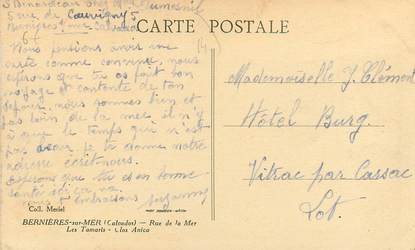 CARTE POSTALE
5 rue de Couvigny
Bernières s/mer Calvados
Nous pensions avoir une
carte comme convenu, nous
espérons que tu as fait bon
voyage et contente de ton
séjour, nous sommes bien et
pas loin de la mer, il n'y
a que le temps qui n'est
pas beau, je te donne notre
adresse écrit-nous.
Espérons que tu es en bonne
santé ici ça va.
Nous t'embrassons Suzanne
Mademoiselle J. Clément
Hôtel Burg.
Vitrac par Cassac
Lot.
Coll. Mesiel
BERNIÈRES-sur-MER (Calvados) — Rue de la Mer
Les Tamaris - Clos Anica